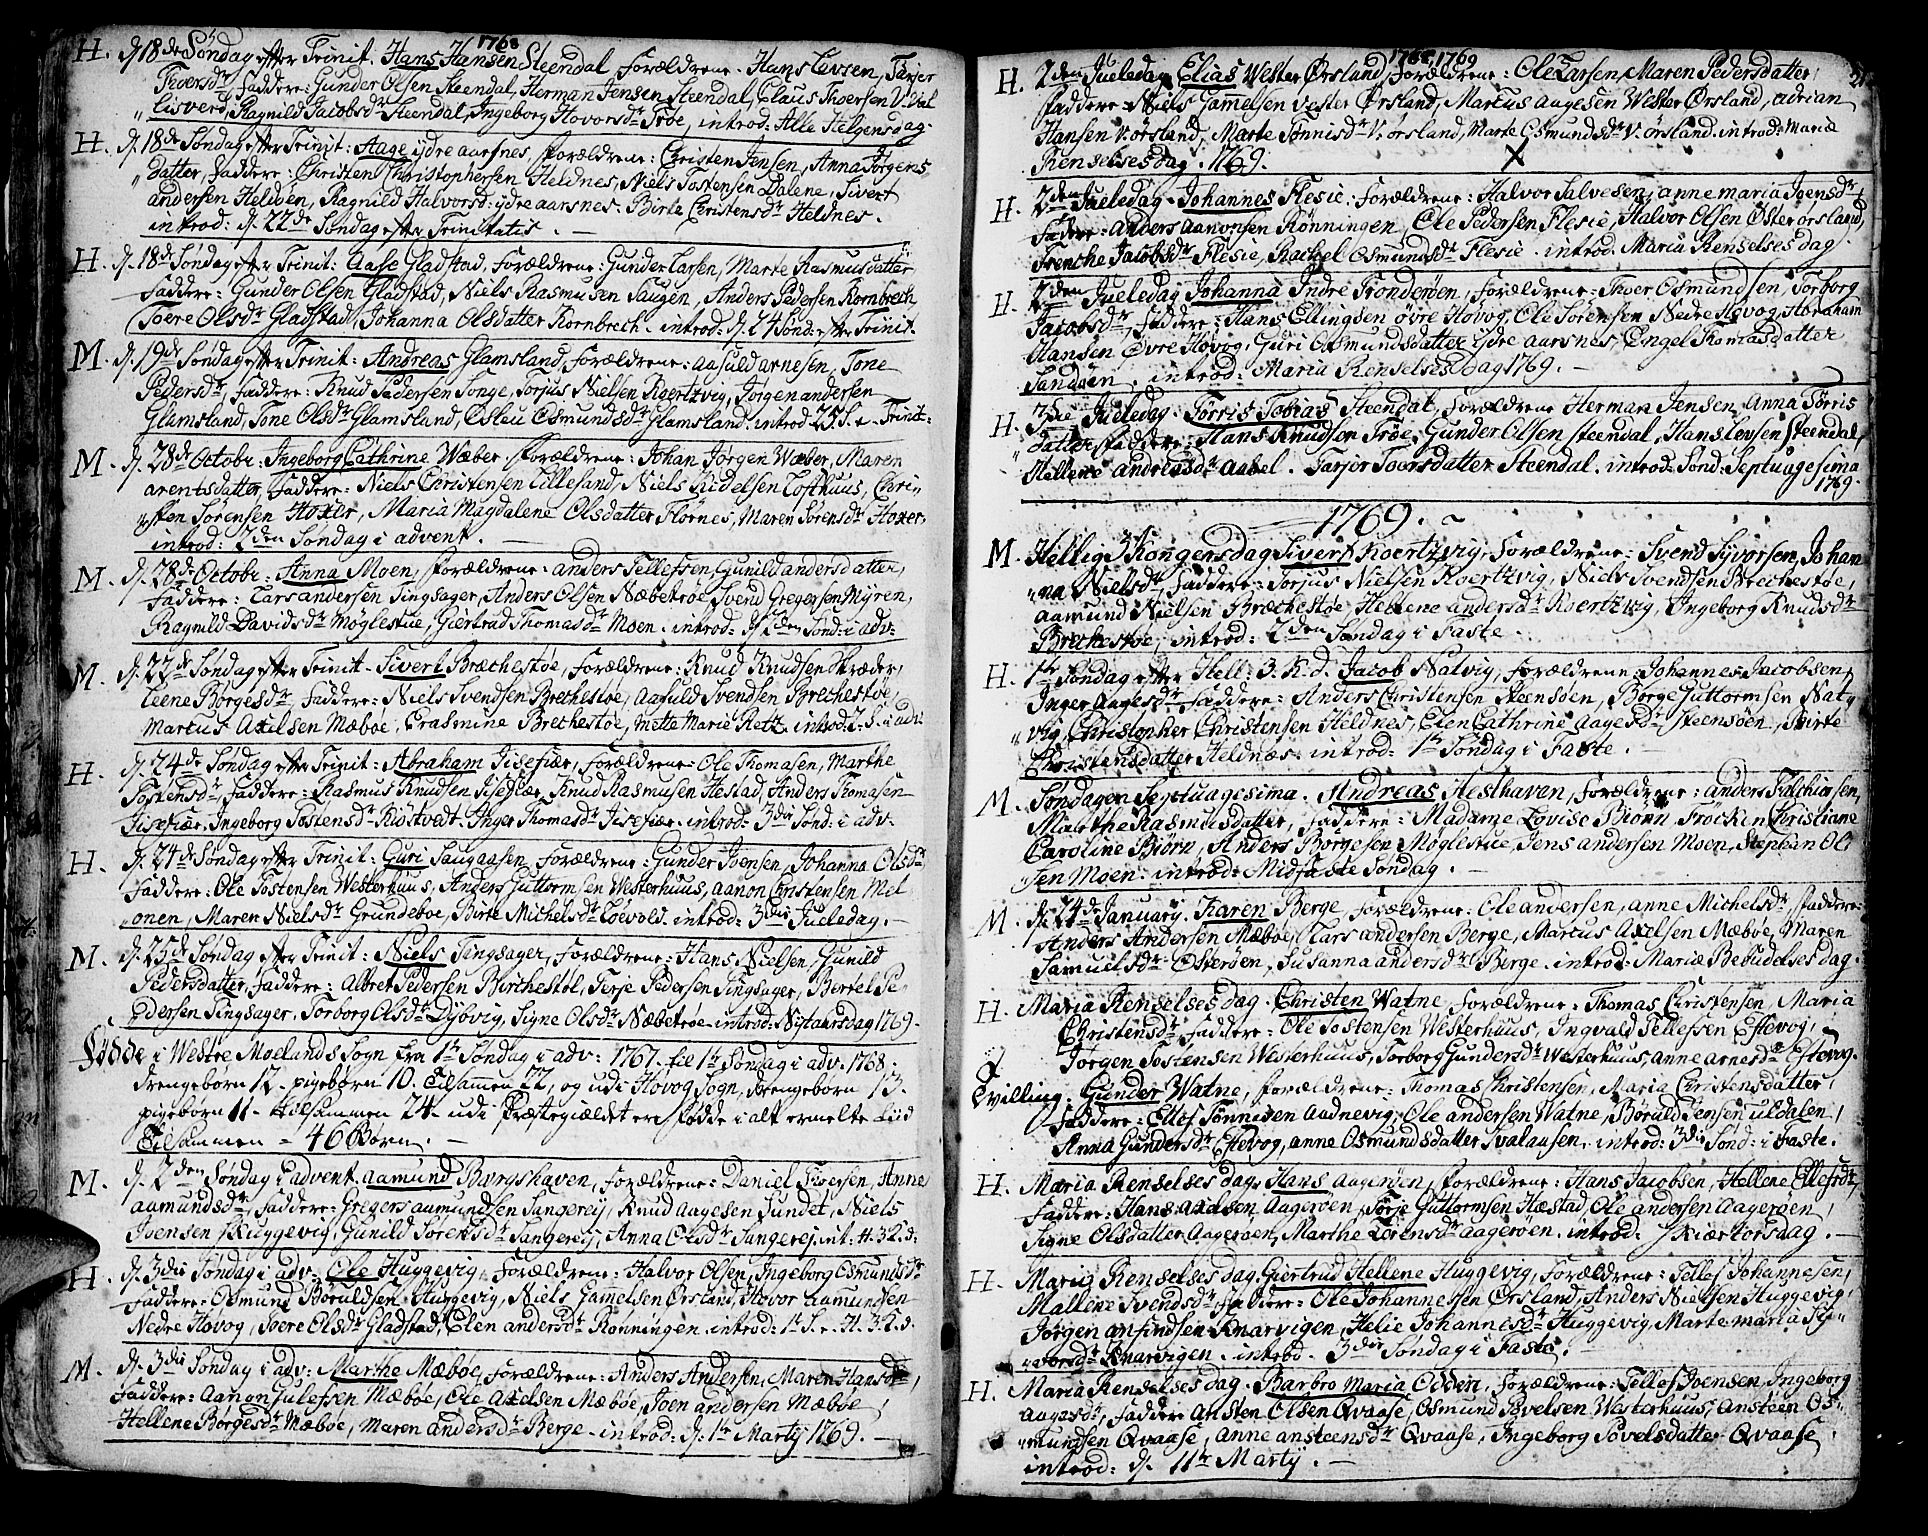 1768
H. d. 18de Søndag efter Trinit. Hans Hansen Steendal, Forældrene: Hans Levsen, Tarjer
Thoersdr, Faddere: Gunder Olsen Steendal, Herman Jensen Steendal, Claus Thoersen V. Val
"lisverd, Ragnild Jacobsdr Steendal, Ingeborg Hovorsdr Trøe, introd: Alle Helgensdag.
H. d. 18de Søndag efter Trinit: Aage ydre aarsnes, Forældrene: Christen Jensen, Anna Jørgens
"datter, Faddere: Christen Christophersen Heldnes, Niels Tostensen Dalene, Sivert
andersen Heldøen, Ragnild Halvorsd: ydre aarsnes. Birte Christensdr Heldnes.
introd: d. 22de Søndag efter Trinitatis. —
H. d. 18de Søndag efter Trinit: Aase Gladstad, Forældrene: Gunder Larsen, Marte Rasmusdatter,
Faddere: Gunder Olsen Gladstad, Niels Rasmusen Saugen, Anders Pedersen Kornbrech
Toere Olsdr Gladstad, Johanna Olsdatter Kornbrech. introd: d. 24 Sønd: efter Trinit.
M. d. 19de Søndag efter Trinit: Andreas Glamsland, Forældrene: aasuld arnesen, Tone
Pedersdr, Faddere: Knud Pedersen Songe, Torjus Nielsen Koertzvig, Jørgen andersen
Glamsland, Tone Olsdr Glamsland, Øsleu Osmundsdr Glamsland. introd. 25. S. e. Trinit:
M. d. 28de Octobr: Ingeborg Cathrine Wæber, Forældrene: Johan Jørgen Wæber, Maren
arentsdatter, Faddere: Niels Christensen Lillesand, Niels Rudelsen Lofthuus, Chri"
"sten Sørensen Hoxer, Maria Magdalene Olsdatter Flørnes, Maren Sørensdr Hoxer,
introd: 2den Søndag i advent. —
M. d. 28de Octobr: Anna Moen, Forældrene: anders Tellefsen, Gunild andersdatter,
Faddere: Lars andersen Tingsager, Anders Olsen Næbetrøe, Svend Gregersen Myren,
Ragnild Davidsdr Møglestue, Giertrud Thomasdr Moen. introd: d. 2den Sønd: i adv:
M. d. 22de Søndag efter Trinit. Sivert Bræchestøe, Forældrene: Knud Knudsen Skræder,
Leene Børgesdr, Faddere: Niels Svendsen Brechestøe, Aasuld Svendsen Brechestøe,
Marcus Axelsen Mæbøe, Erasmine Brechestøe, Mette Marie Retz, introd: 2. S. i adv:
H. d. 24de Søndag efter Trinit: Abraham Tisefiær, Forældrene: Ole Thomasen, Marthe
Tostensdr, Faddere: Rasmus Knudsen Tisefiær, Knud Rasmusen Hestad, Anders Thomasen
Tisefiær, Ingeborg Tostensdr Kiøstvedt, Inger Thomasdr Tisefiær. introd: 3die Sønd: i adv.
H. d. 24de Søndag efter Trinit: Guri Saugaasen, Forældrene: Gunder Joensen, Johanna Olsdr
Faddere: Ole Tostensen Westerhuus, Anders Guttormsen Westerhuus, aanon Christensen Mel
"onen, Maren Nielsdr Grundeboe, Birte Michelsdr Løevold. introd: 3die Jueledag. —
M. d. 25de Søndag efter Trinit: Niels Tingsager, Forældrene: Hans Nielsen, Gunild
Pedersdatter, Faddere: Albret Pedersen Birchestøl, Terje Pedersen Tingsager, Bertel Pe"
"dersen Tingsager, Torborg Olsdr Dybvig, Signe Olsdr Næbetrøe. introd: Nytaarsdag 1769.
Fødde i Westre Moelands Sogn fra 1te Søndag i adv: 1767. til 1te Søndag i adv. 1768.
drengebørn 12 - pigebørn 10. Tilsammen 22, og udi Høvog Sogn, drengebørn 13
pigebørn 11 - tilsammen 24 - udi Præstegieldet er fødde i alt ermelte Tiid
Tilsammen = 46 Børn. —
M. d. 2den Søndag i advent. aamund Børgshaven, Forældrene: Daniel Tioersen, Anne
aamundsdr, Faddere: Gregers aamundsen Sangereij, Knud Aagesen Tundet, Niels
Joensen Skuggevig, Gunild Sørensdr Sangereij, Anna Olsdr Sangerej. int: H. 3 K. d.
H. d. 3die Søndag i adv. Ole Huggevig, Forældrene: Halvor Olsen, Ingeborg Osmundsdr
Faddere: Osmund Boruldsen Huggevig, Niels Gamelsen Ørsland, Hovor aamundsen
Nedre Høvog, Toere Olsdr Gladstad, Elen andersdr Rønningen. introd: 1te S. e. H. 3 K. d.
M. d. 3die Søndag i adv: Marthe Mæbøe, Forældrene: Anders Andersen, Maren Hansdr,
Faddere: Aanon Gulefsen Mæbøe, Ole Axelsen Mæbøe, Joen andersen Mæbøe
Hellene Børgesdr Mæbøe, Maren andersdr Berge. introd: d. 1te Martij 1769. —
1768, 1769
H. 2den Jueledag Elias Wester Ørsland, Forældrene: Ole Larsen, Maren Pedersdatter,
Faddere: Niels Gamelsen Vester Ørsland, Marcus aagesen Wester Ørsland, adrian
Hansen V. ørsland, Marte Tønnisdr V. ørsland, Marte Osmundsdr V. ørsland. introd: Mariæ
Renselsesdag. 1769.
H. 2den Jueledag. Johannes Flesie, Forældrene: Halvor Salvesen, anne maria Joensdr,
Faddere: Anders Aanonsen Rønningen, Ole Pedersen Flesie, Halvor Olsen Østerørsland,
Trenche Jacobsdr Flesie, Rachel Osmundsdr Flesie. introd. Mariæ Renselsesdag.
H. 2den Jueledag Johanna Indre Trondsrøen, Forældrene: Thoer Osmundsen, Torborg
Jacobsdr, Faddere: Hans Ellingsen øvre Høvog, Ole Sørensen Nedre Høvog, Abraham
Hansen Øvre Høvog, Guri Osmundsdatter ydre aarsnes, Engel Thomasdatter
Sandøen. introd: Mariæ Renselses Dag 1769. —
H. 3die Jueledag. Torris Tobias Steendal, Forældrene Herman Jensen, Anna Torris
datter Faddere: Hans Knudsen Trøe, Gunder Olsen Steendal, Hans Levsen Steendal,
Hellene andreasdr aabel. Tarjer Toersdatter Steendal. introd: Sønd: Septuagesima
1769.
1769.
M. Hellig 3 Kongersdag Sivert Koertzvig, Forældrene: Svend Syvorsen, Johan
"na Nielsdr, Faddere: Torjus Nielsen Koertzvig, Niels Svendsen Brechestøe,
aamund Nielsen Bræchestøe, Hellene andersdr Koertzvig, Ingeborg Knudsdr
Brechestøe, introd: 2den Søndag i Faste.
H. 1te Søndag efter Hell: 3. K. d. Jacob Natvig, Forældrene: Johannes Jacobsen,
Inger Aagesdr Faddere: Anders Christensen Steensøen, Børge Guttormsen Nat"
"vig, Christopher Christensen Heldnes, Elen Cathrine aagesdr Steensøen, Birte
Christensdatter Heldnæs. introd: 1te Søndag i Faste. —
M. Søndagen Septuagesima. Andreas Hesthaven, Forældrene: Anders Falchiorsen,
Marthe Rasmusdatter, Faddere: Madame Lovise Biørn, Frøckin Christiane
Caroline Biørn, Anders Børgesen Møglestue, Jens andersen Moen, Stephan Ol
"sen Moen. introd: Midfaste Søndag. —
M. d. 24de January. Karen Berge, Forældrene: Ole andersen, anne Michelsdr, Faddere:
Anders Andersen Mæbøe, Lars andersen Berge, Marcus Axelsen Mæbøe, Maren
Samuelsdr Osterøen, Susanna andersdr Berge. introd: Mariæ Bebudelsesdag.
H. Mariæ Renselsesdag. Christen Watne, Forældrene: Thomas Christensen, Maria
Christensdr, Faddere: Ole Tostensen Westerhuus, Ingvald Tellefsen Eftevog,
Jørgen Tostensen Westerhuus, Torborg Gundersdr Westerhuus, anne arnesdr Eftevog.
Tvilling: Gunder Watne, Forældrene: Thomas Christensen, Maria Christensdatter,
Faddere: Ellef Tønnisen Aadnevig, Ole andersen Watne, Børuld Jensen Uldalen,
Anna Gundersdr Eftevog, anne Osmundsdatter Svalausen. introd: 3die Sønd: i Faste.
H. Mariæ Renselses dag. Hans Aagerøen, Forældrene: Hans Jacobsen, Hellene Ellefsdr,
Faddere: Hans Axelsen Aagerøen, Terje Guttormsen Hæstad, Ole andersen Aagerøen,
Signe Olsdatter Aagerøen, Marthe Lørensdr aagerøen. introd. Skiertorsdag. —
H. Mariæ Renselses dag. Giertrud Hellene Huggevig, Forældrene: Tellef Johannesen,
Mallene Svendsdr, Faddere: Ole Johannesen Ørsland, Anders Nielsen Huggevig,
Jørgen anfindsen Knarvigen, Helie Johannesdr Huggevig, Marte maria Sy"
"vorsdr Knarvigen. introd. 3die Søndag i Faste.
H. Mariæ Renselses dag. Barbro Maria Odden, Forældrene: Tellef Joensen, Ingeborg
aagesdr, Faddere Ansten Olsen Qvaase, Osmund Tovelsen Westerhuus, Ansteen Os"
"mundsen Qvaase, Anne ansteensdr Qvaase, Ingeborg Tovelsdatter Qvaase.
introd: d. 11te Marty. —